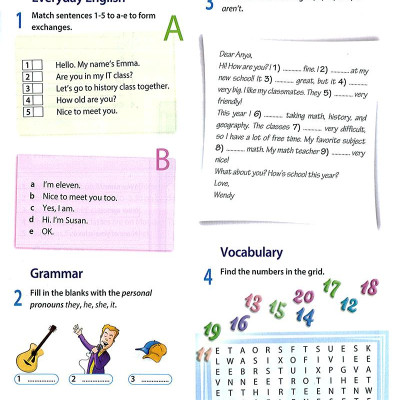 Everyday English
1 Match sentences 1-5 to a-e to form
exchanges.
A
1 Hello. My name's Emma.
2 Are you in my IT class?
3 Let's go to history class together.
4 How old are you?
5 Nice to meet you.
B
a I'm eleven.
b Nice to meet you too.
c Yes, I am.
d Hi. I'm Susan.
e OK.
Grammar
2 Fill in the blanks with the personal
pronouns they, he, she, it.
1 ............... 2 ............... 3 ...............
3
aren't.
Dear Anya,
Hi! How are you? I 1) .......... fine. I 2) .......... at my
new school! It 3) .......... great, but it 4) ..........
very big. I like my classmates. They 5) .......... very
friendly!
This year I 6) .......... taking math, history, and
geography. The classes 7) .......... very difficult,
so I have a lot of free time. My favorite subject
8) .......... math. My math teacher 9) .......... very
nice!
What about you? How's school this year?
Love,
Wendy
Vocabulary
4 Find the numbers in the grid.
13 15 20 17 12 18
19 16 14
11
E T A O R S F T S U E S K
L W A S I X O F I V I E E
E E B R S T U I X P G V A
V N N E E T R O T I H E T
E T T H I R T E E N T N W